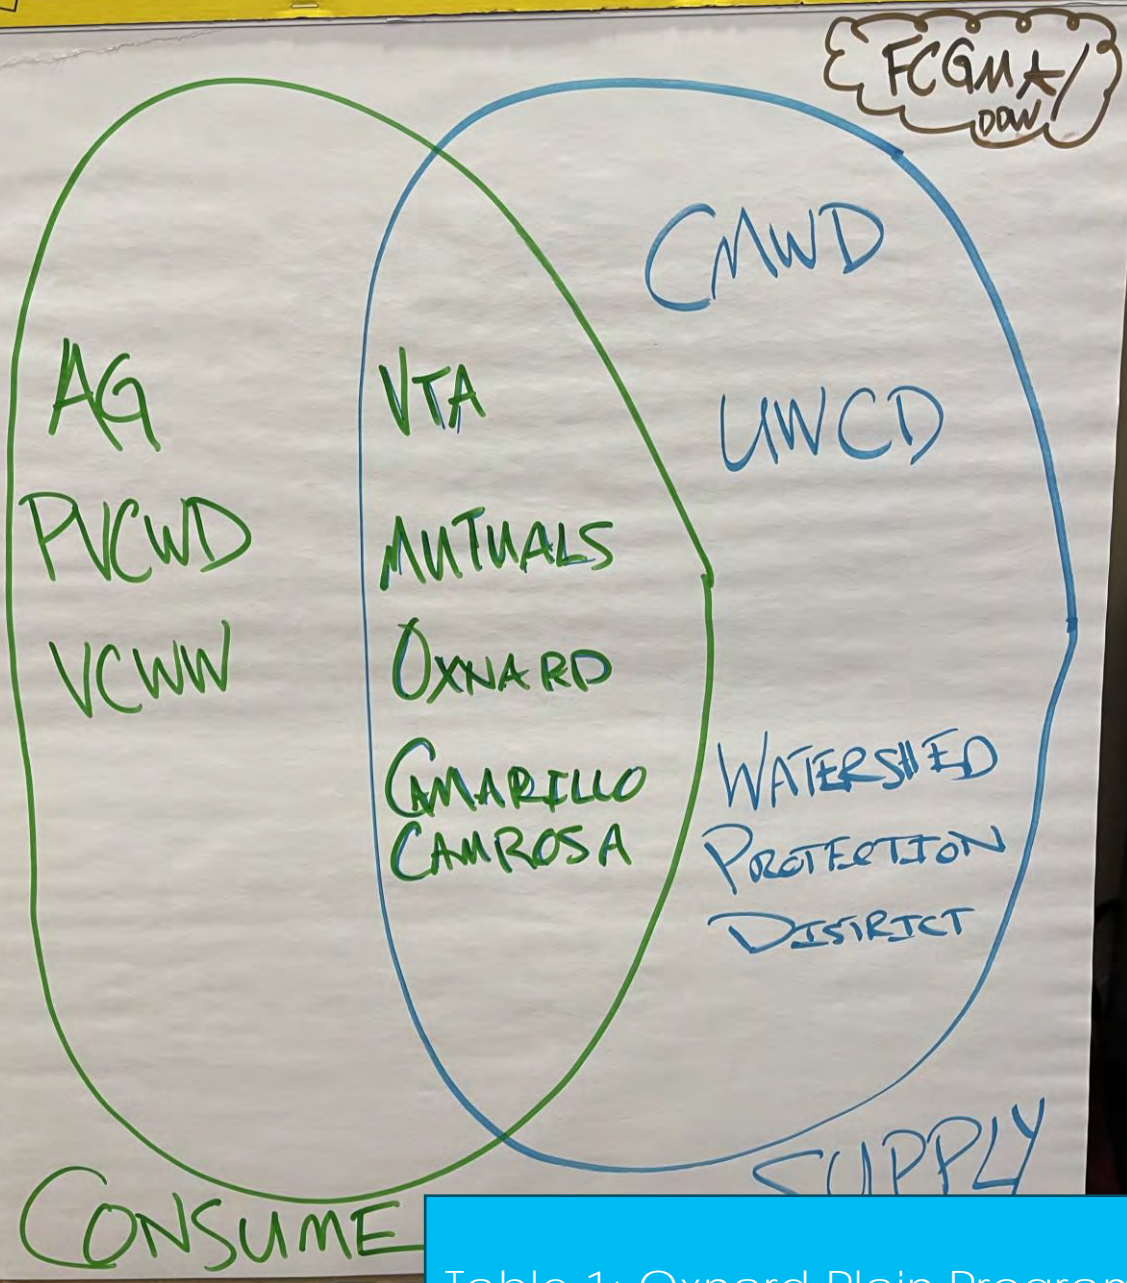 FCGMA/
DDW
CMWD
UWCD
AG
PVCWD
VCWW
VTA
MUTUALS
OXNARD
CAMARILLO
CAMROSA
WATERSHED
PROTECTION
DISTRICT
CONSUME
SUPPLY
Table 1: Oxnard Plain Program